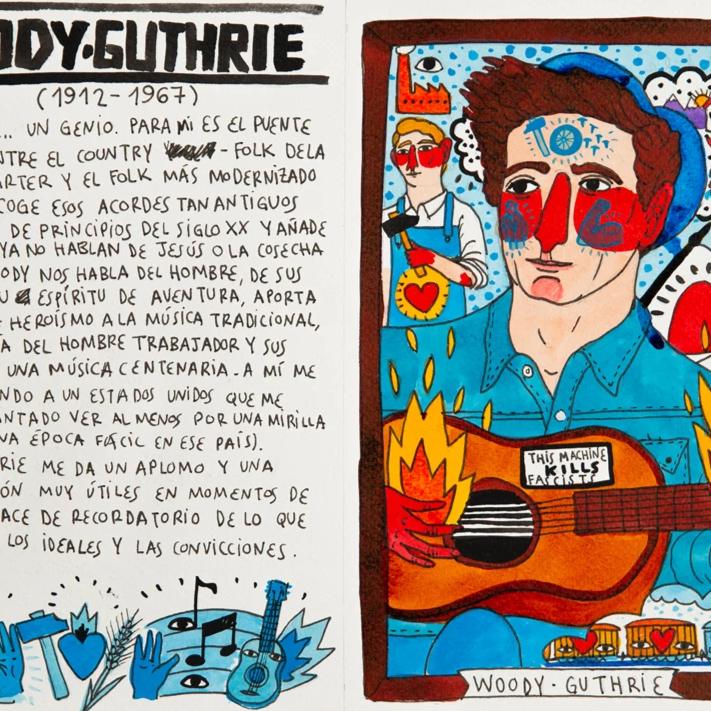 ODY·GUTHRIE
(1912-1967)
... UN GENIO. PARA MI ES EL PUENTE
NTRE EL COUNTRY - FOLK DE LA
ARTER Y EL FOLK MÁS MODERNIZADO
COGE ESOS ACORDES TAN ANTIGUOS
DE PRINCIPIOS DEL SIGLO XX Y AÑADE
YA NO HABLAN DE JESÚS O LA COSECHA
OODY NOS HABLA DEL HOMBRE, DE SUS
U ESPÍRITU DE AVENTURA, APORTA
E HEROÍSMO A LA MÚSICA TRADICIONAL,
A DEL HOMBRE TRABAJADOR Y SUS
UNA MÚSICA CENTENARIA. A MÍ ME
NDO A UN ESTADOS UNIDOS QUE ME
ANTADO VER AL MENOS POR UNA MIRILLA
NA ÉPOCA FÁCIL EN ESE PAÍS).
RIE ME DA UN APLOMO Y UNA
ÓN MUY ÚTILES EN MOMENTOS DE
ACE DE RECORDATORIO DE LO QUE
LOS IDEALES Y LAS CONVICCIONES.
THIS MACHINE
KILLS
FASCISTS
WOODY·GUTHRIE